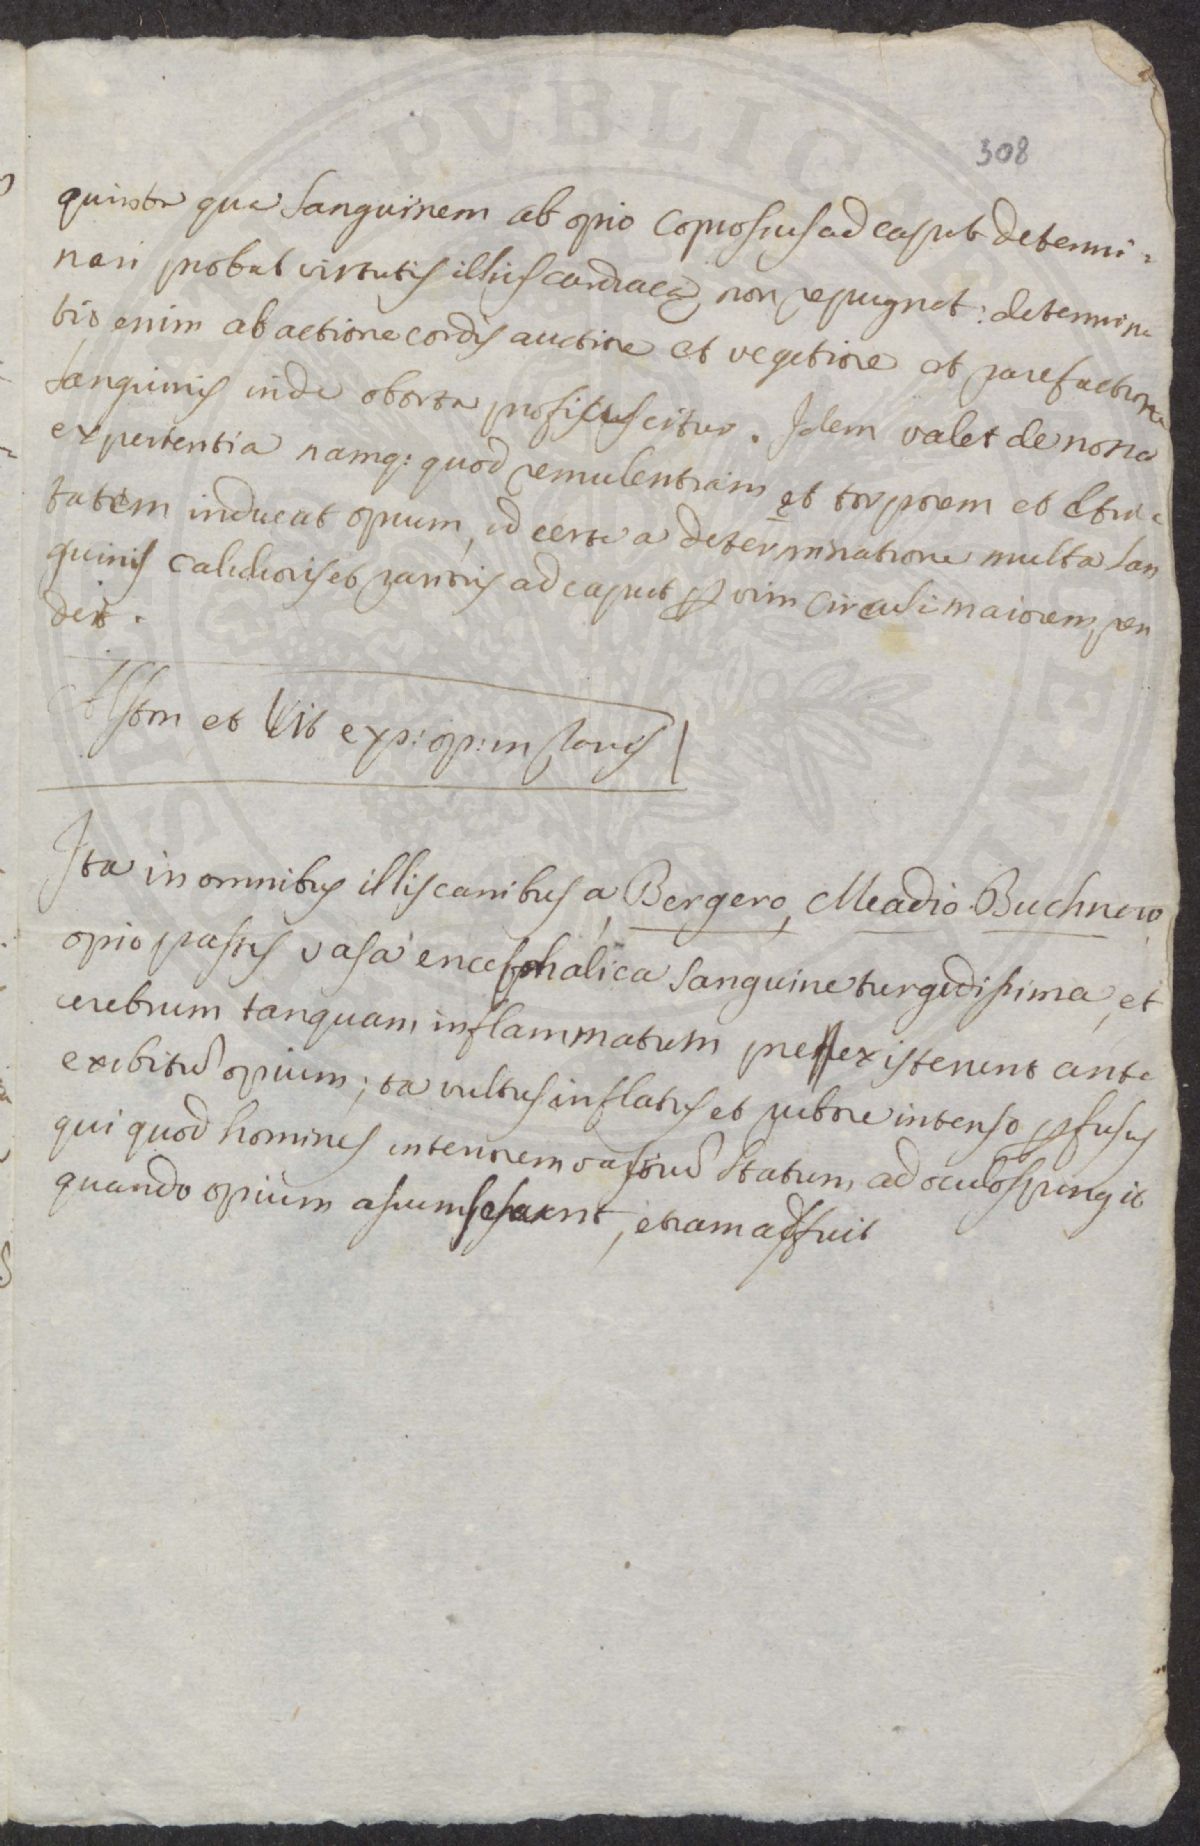 308
quinta qua sanguinem ab opio copiosius ad caput determi-
nari probat virtutis illius cardiacæ non repugnat: determina
tio enim ab actione cordis auctiore et vegetiore et rarefactione
sanguinis inde oborta proficiscitur. Idem valet de nona
experientia namq: quod temulentiam et torporem et Ebrie
tatem inducat opium, id certe a determinatione multa san
guinis calidioris et rarioris ad caput p vim circuli maiorem, pen
det.
et Vit exp: op: in
Ita in omnibus illis canibus a Bergero, Meadio Buchnero,
opio pastis vasa encephalica sanguine turgidissima, et
cerebrum tanquam inflammatum extiterunt ante
exibitũ opium; ta vultus inflatus et rubore intenso pfusus
qui quod homines interiorem vasorũ statum ad oculos pingit
quando opium asumserunt, etiam adfuit